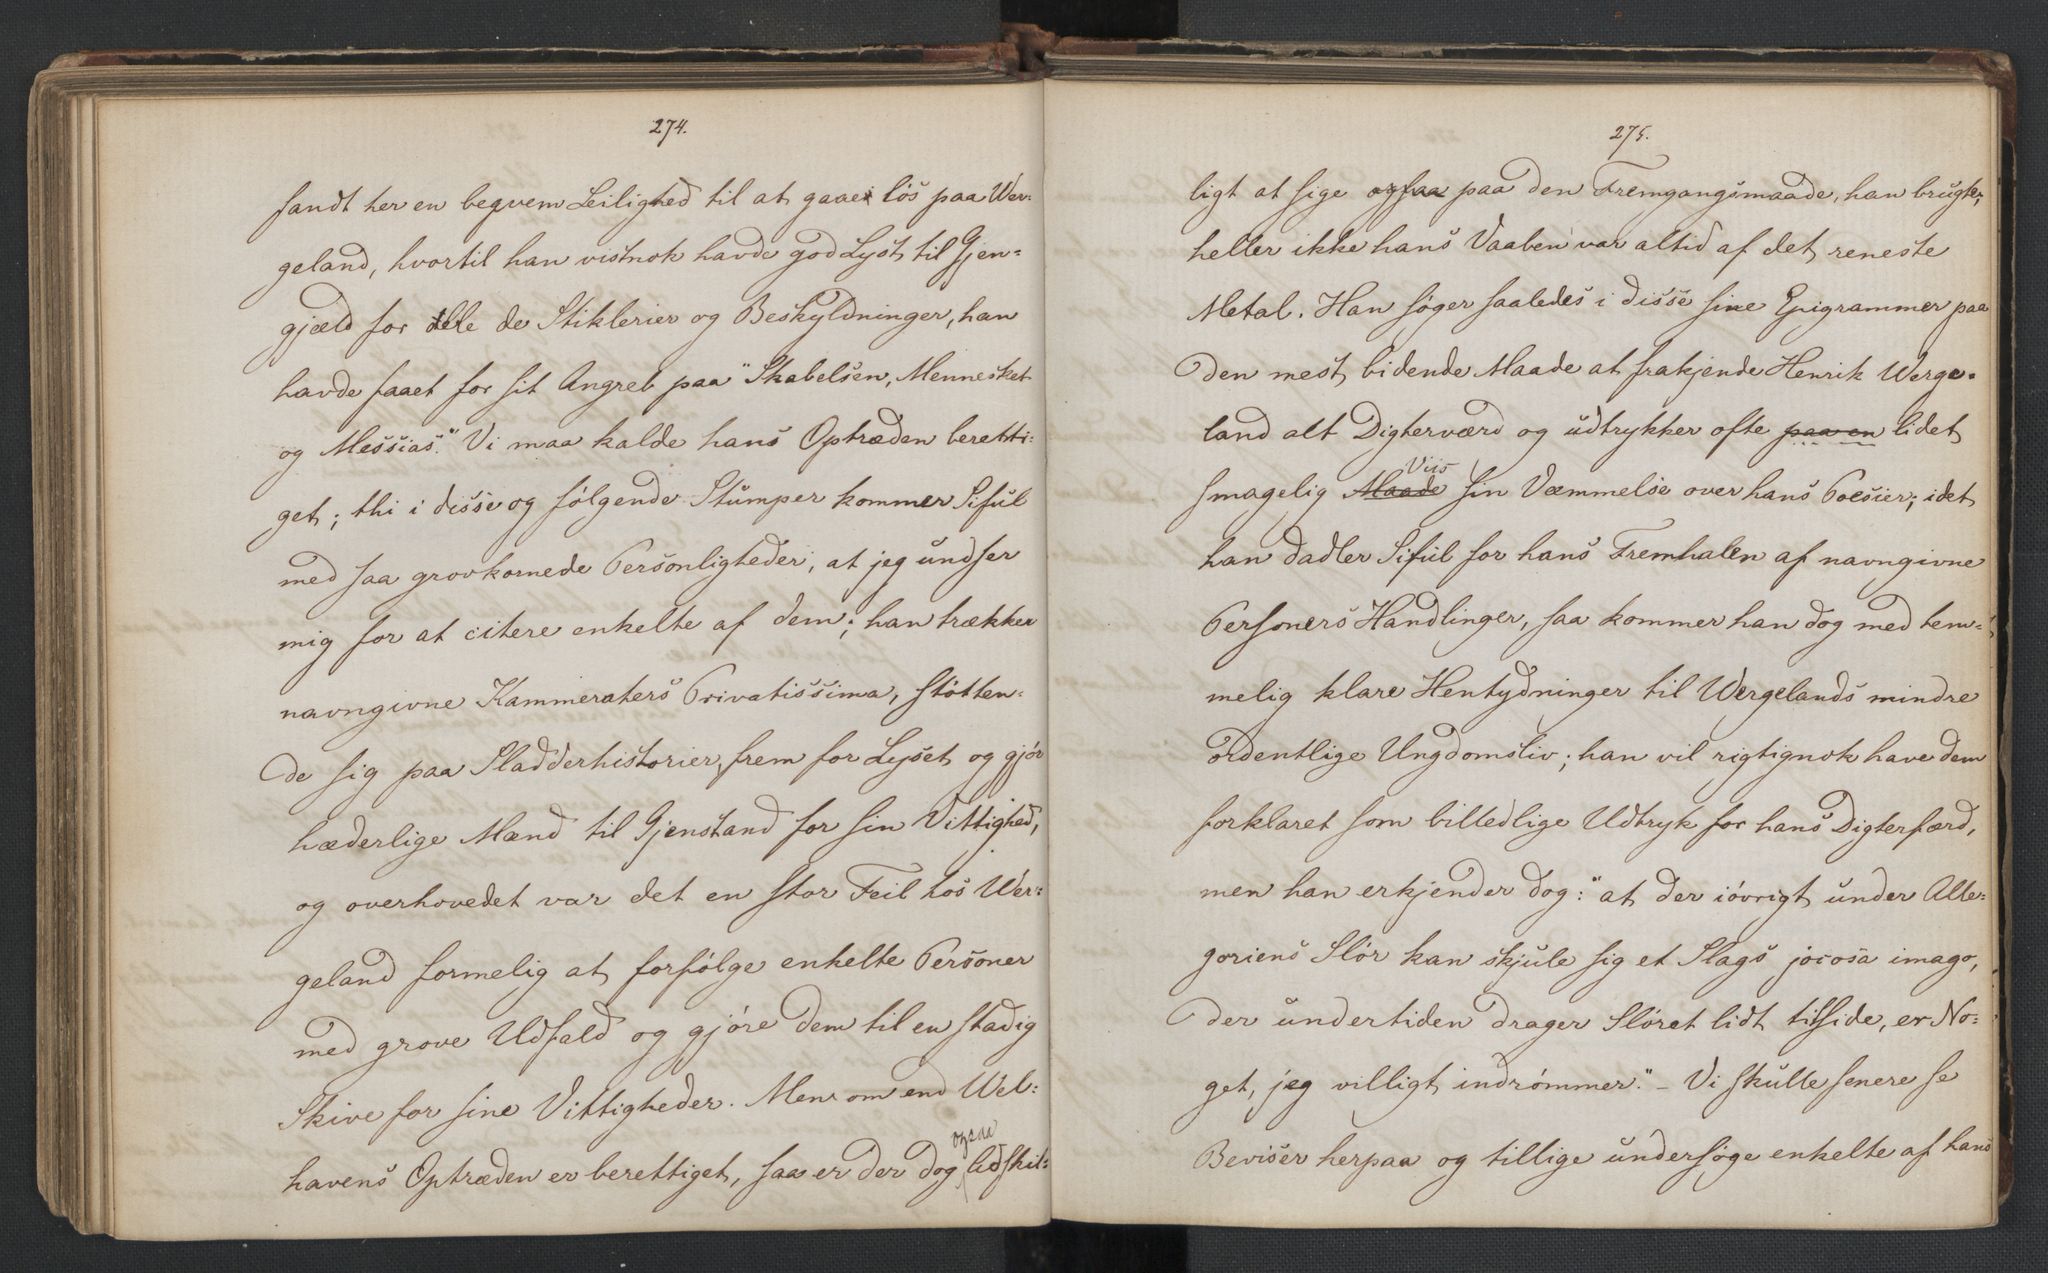 274.
fandt her en beqvem Leilighed til at gaae løs paa Wer-
geland, hvortil han vistnok havde god Lyst til Gjen-
gjæld for alle de Stiklerier og Beskyldninger, han
havde faaet for sit Angreb paa "Skabelsen, Mennesket
og Messias." Vi maa kalde hans Optræden beretti-
get; thi i disse og følgende Stumper kommer Siful
med saa grovkornede Personligheder, at jeg undser
mig for at citere enkelte af dem; han trækker
navngivne Kammeraters Privatissima, støtten-
de sig paa Sladderhistorier, frem for Lyset og gjør
hæderlige Mænd til Gjenstand for sin Vittighed,
og overhovedet var det en stor Feil hos Wer-
geland formelig at forfølge enkelte Personer
med grove Udfald og gjøre dem til en stadig
Skive for sine Vittigheder. Men om end Wel-
havens Optræden er berettiget, saa er der dog ogsaa Adskil-
275.
ligt at sige ogsaa paa den Fremgangsmaade, han brugte;
heller ikke hans Vaaben var altid af det reneste
Metal. Han søger saaledes i disse sine Epigrammer paa
den mest bidende Maade at frakjende Henrik Werge-
land alt Digterværd og udtrykker ofte paa en lidet
Viis
smagelig Maade sin Væmmelse over hans Poesier; idet
han dadler Siful for hans Fremhalen af navngivne
Personers Handlinger, saa kommer han dog med tem-
melig klare Hentydninger til Wergelands mindre
ordentlige Ungdomsliv; han vil rigtignok have dem
forklaret som billedlige Udtryk for hans Digterfærd,
men han erkjender dog: "at der iøvrigt under Alle-
goriens Slør kan skjule sig et Slags jocosa imago,
der undertiden drager Sløret lidt tilside, er No-
get, jeg villigt indrømmer." - Vi skulle senere se
Beviser herpaa og tillige undersøge enkelte af hans